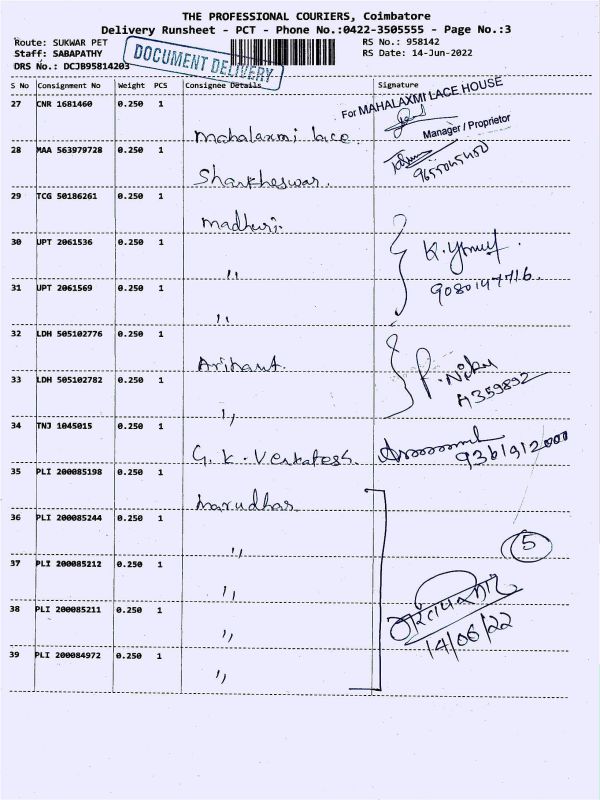 THE PROFESSIONAL COURIERS, Coimbatore
Delivery Runsheet - PCT - Phone No.:0422-3505555 - Page No.:3
Route: SUKWAR PET RS No.: 958142
Staff: SABAPATHY RS Date: 14-Jun-2022
DRS No.: DCJB95814203
DOCUMENT DELIVERY
S No Consignment No Weight PCS Consignee Details Signature
27 CNR 1681460 0.250 1 Mahalaxmi lace
For MAHALAXMI LACE HOUSE
Manager / Proprietor
28 MAA 563979728 0.250 1 Shankheswar.
9655045450
29 TCG 50186261 0.250 1 Madhuri.
30 UPT 2061536 0.250 1 "
K.
9080147716.
31 UPT 2061569 0.250 1 "
32 LDH 505102776 0.250 1 Arihant.
33 LDH 505102782 0.250 1 "
P.
34 TNJ 1045015 0.250 1 G. K. Venkatesh.
9361912000
35 PLI 200085198 0.250 1 Marudhar
36 PLI 200085244 0.250 1 "
5
37 PLI 200085212 0.250 1 "
38 PLI 200085211 0.250 1 "
14/06/22
39 PLI 200084972 0.250 1 "